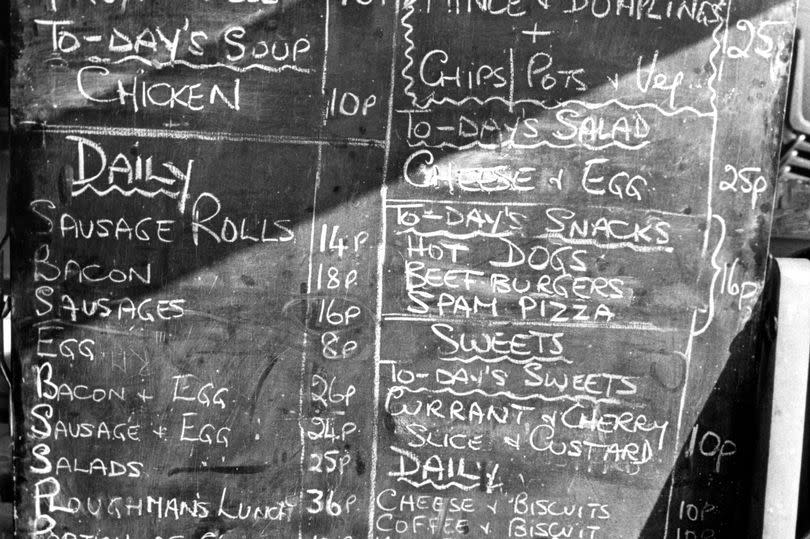 To-day's Soup
Chicken 10p
Daily
Sausage Rolls 14p
Bacon 18p
Sausages 16p
Egg 8p
Bacon + Egg 26p
Sausage + Egg 24p
Salads 25p
Ploughman's Lunch 36p
Mince & Dumplings
+ 25p
Chips/Pots & Veg
To-day's Salad
Cheese & Egg 25p
To-day's Snacks
Hot Dogs
Beef-burgers 16p
Spam Pizza
Sweets
To-day's Sweets
Currant & Cherry
Slice & Custard 10p
Daily
Cheese & Biscuits 10p
Coffee & Biscuit 10p